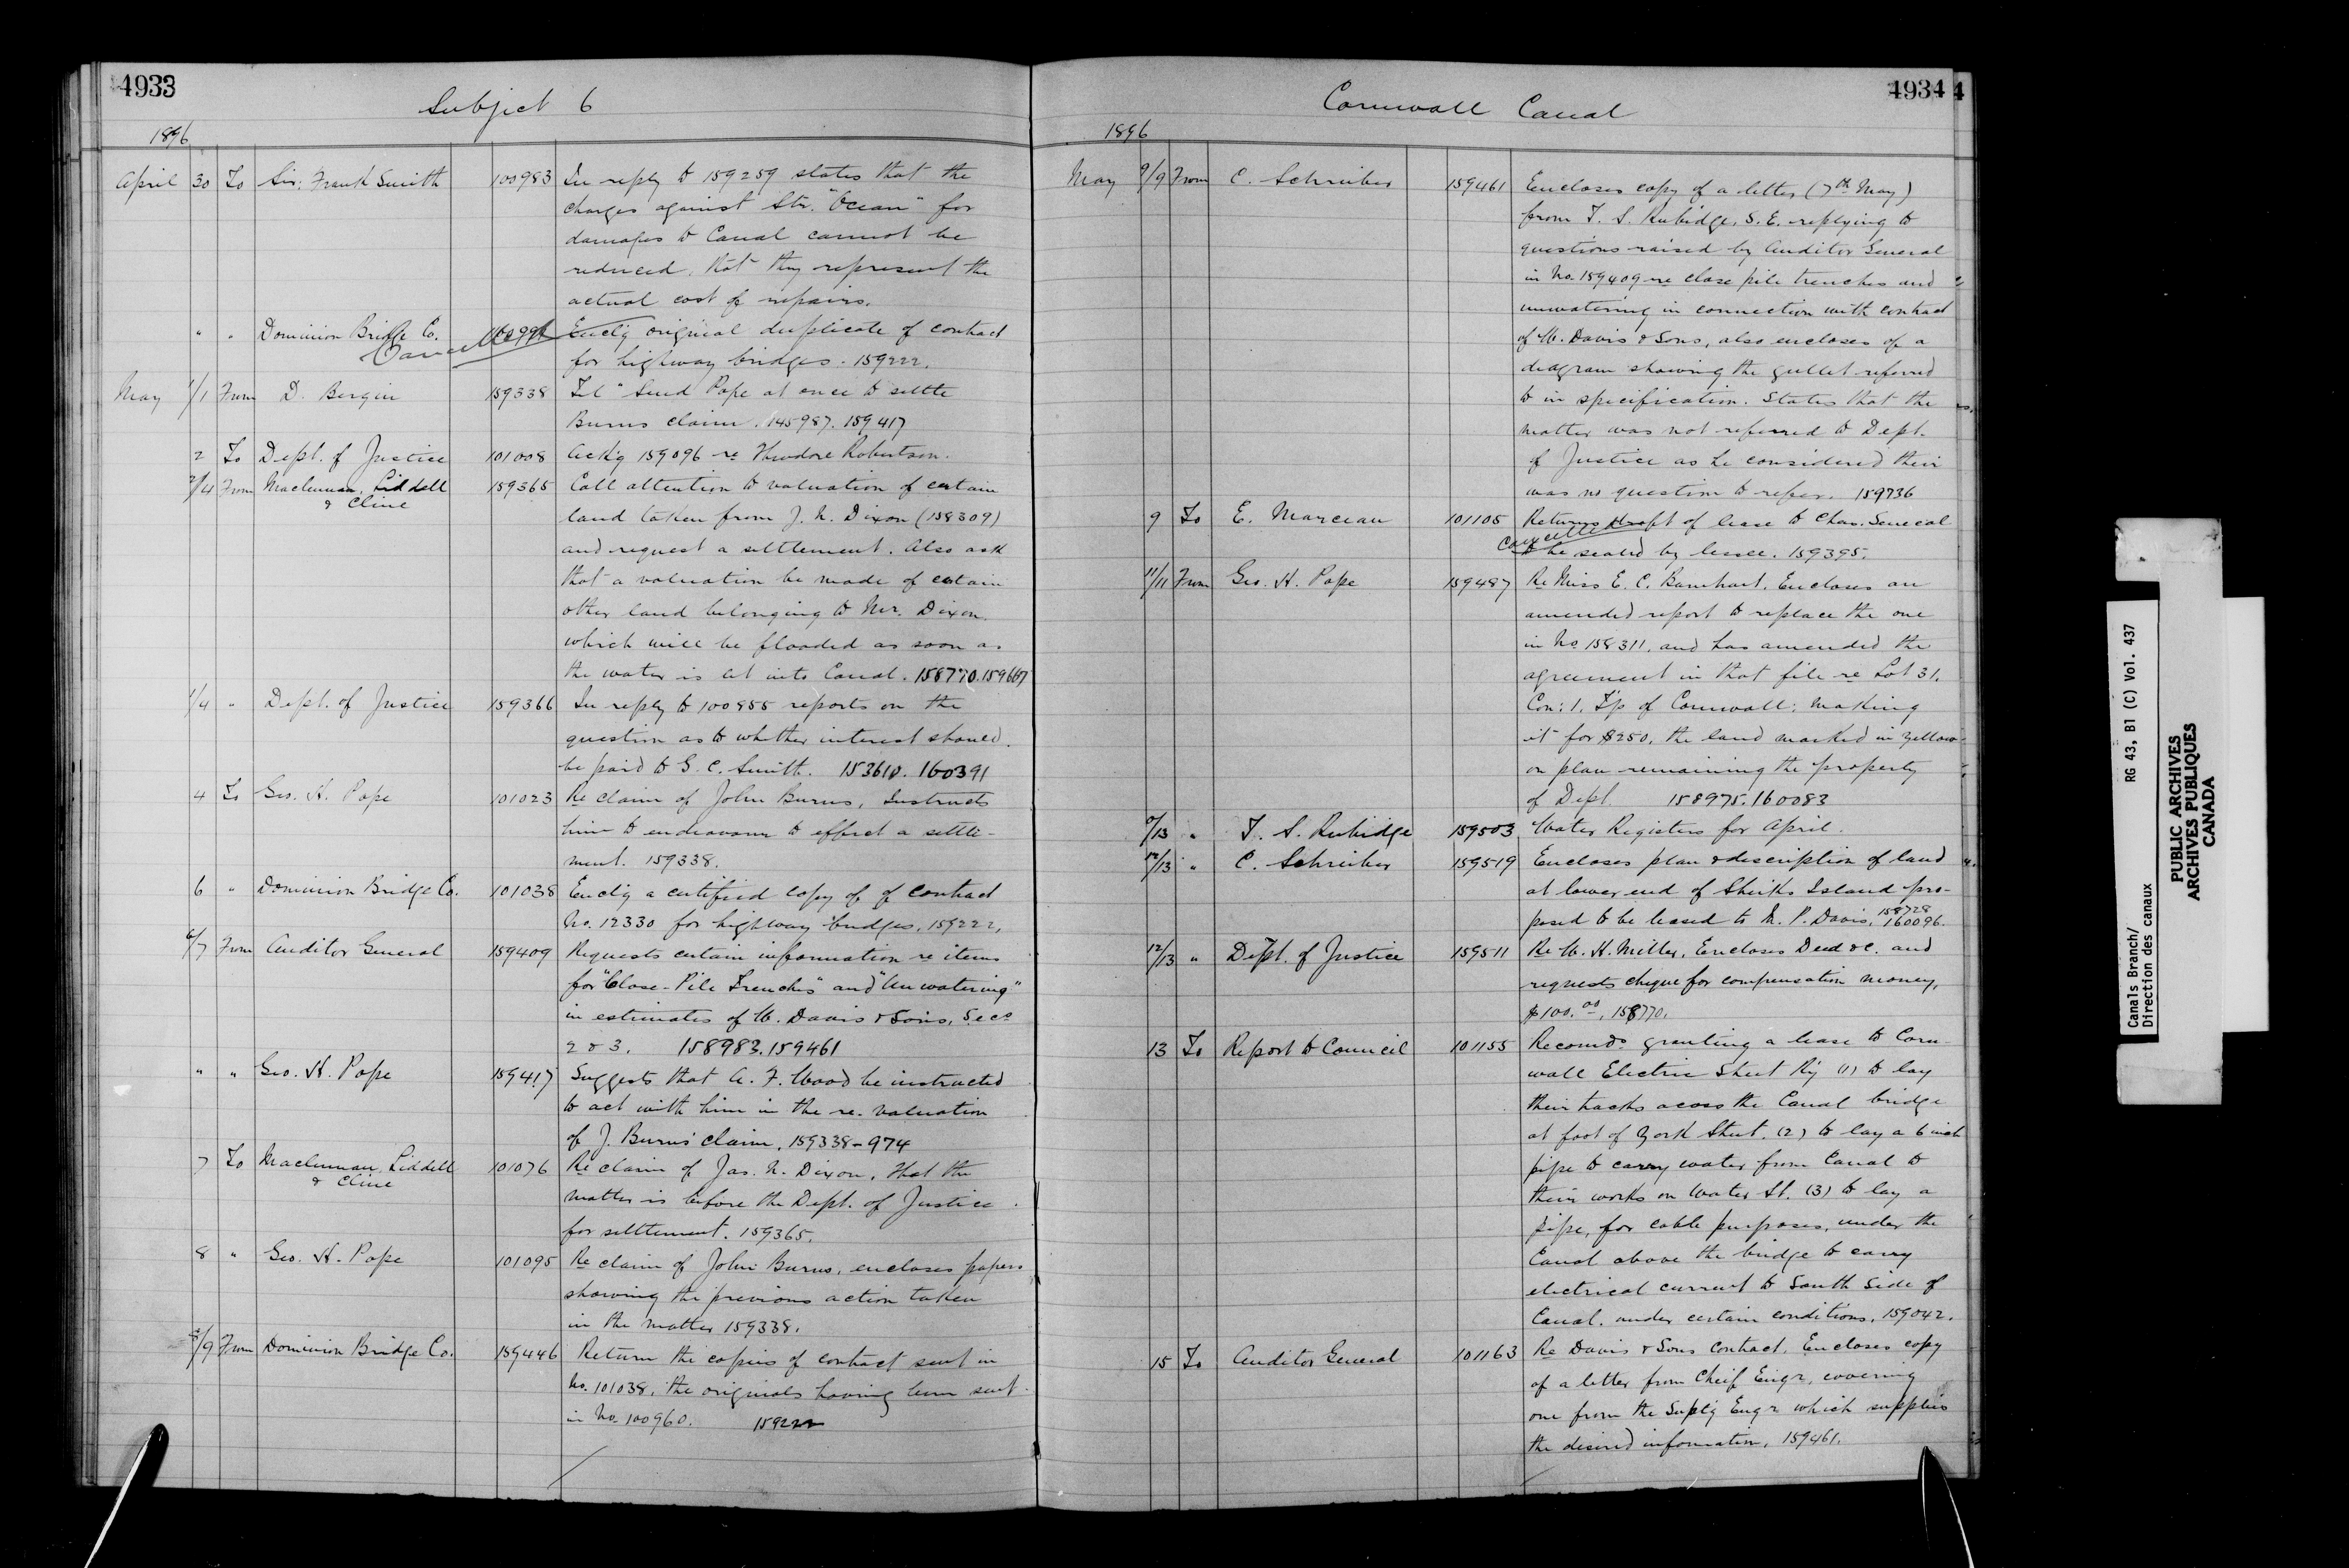 4933
Subject 6
1896
April 30 To Sir. Frank Smith 100983 In reply to 159259 states that the
charges against Str. "Ocean" for
damages to Canal cannot be
reduced, that they represent the
actual cost of repairs.
" " Dominion Bridge Co. Enclg original duplicate of contract
Cancelled
for highway bridges. 159222.
May 1/1 From D. Bergin 159338 Tel "Send Pope at once to settle
Burns claim. 145987. 159417
2 To Dept. of Justice 101008 Ackg 159096 re Theodore Robertson.
2/4 From Maclennan, Liddell 159365 Call attention to valuation of certain
& Cline
land taken from J. N. Dixon (158309)
and request a settlement. Also ask
that a valuation be made of certain
other land belonging to Mr. Dixon.
which will be flooded as soon as
the water is let into Canal. 158770. 159667
1/4 " Dept. of Justice 159366 In reply to 100855 reports on the
question as to whether interest should
be paid to G. C. Smith. 153610. 160391
4 To Geo. H. Pope 101023 Re claim of John Burns, Instructs
him to endeavour to effect a settle-
ment. 159338.
6 " Dominion Bridge Co. 101038 Enclg a certified copy of of contract
No. 12330 for highway bridges. 159222.
6/7 From Auditor General 159409 Requests certain information re items
for "Close-Pile Trenches" and "Unwatering"
in estimates of W. Davis & Sons, Secs
2 & 3. 158983. 159461
" " Geo. H. Pope 159417 Suggests that A. F. Wood be instructed
to act with him in the re. valuation
of J. Burns' claim. 159338-974
7 To Maclennan, Liddell 101076 Re claim of Jas. N. Dixon, that the
& Cline
matter is before the Dept. of Justice
for settlement. 159365.
8 " Geo. H. Pope 101095 Re claim of John Burns, encloses papers
showing the previous action taken
in the matter 159338.
8/9 From Dominion Bridge Co. 159446 Return the copies of contract sent in
No. 101038, the originals having been sent
in No. 100960. 159222
4934
Cornwall Canal
1896
May 9/9 From C. Schreiber 159461 Encloses copy of a letter (7th May)
from T. S. Rubidge, S. E. replying to
questions raised by Auditor General
in No. 159409 re close pile trenches and
unwatering in connection with contract
of W. Davis & Sons, also encloses of a
diagram showing the gullet referred
to in specification. States that the
matter was not referred to Dept.
of Justice as he considered their
was no question to refer. 159736
9 To E. Marceau 101105 Returns draft of lease to Chas. Senecal
Cancelled
to be sealed by lessee. 159395.
11/11 From Geo. H. Pope 159487 Re Miss E. C. Barnhart, Encloses an
amended report to replace the one
in No 158311, and has amended the
agreement in that file re Lot 31.
Con: 1. T'p of Cornwall: making
it for $250, the land marked in yellow
on plan remaining the property
of Dept. 158975. 160083
/13 " T. S. Rubidge 159503 Water Registers for April.
12/13 " C. Schreiber 159519 Encloses plan & description of land
at lower end of Sheiks Island pro-
posed to be leased to M. P. Davis. 158728 160096.
12/13 " Dept. of Justice 159511 Re W. H. Miller, Encloses Deed &c. and
requests cheque for compensation money,
$100.00. 158770.
13 To Report to Council 101155 Recomds granting a lease to Corn-
wall Electric Street Ry (1) to lay
their tracks across the Canal bridge
at foot of York Street. (2) to lay a 6 inch
pipe to carry water from Canal to
their works on Water St. (3) to lay a
pipe, for cable purposes, under the
Canal above the bridge to carry
electrical current to South Side of
Canal. under certain conditions. 159042.
15 To Auditor General 101163 Re Davis & Sons Contract. Encloses copy
of a letter from Cheif Engr, covering
one from the Suptg Engr which supplies
the desired information. 159461.
Canals Branch/ RG 43, B1 (C) Vol. 437
Direction des canaux
PUBLIC ARCHIVES
ARCHIVES PUBLIQUES
CANADA